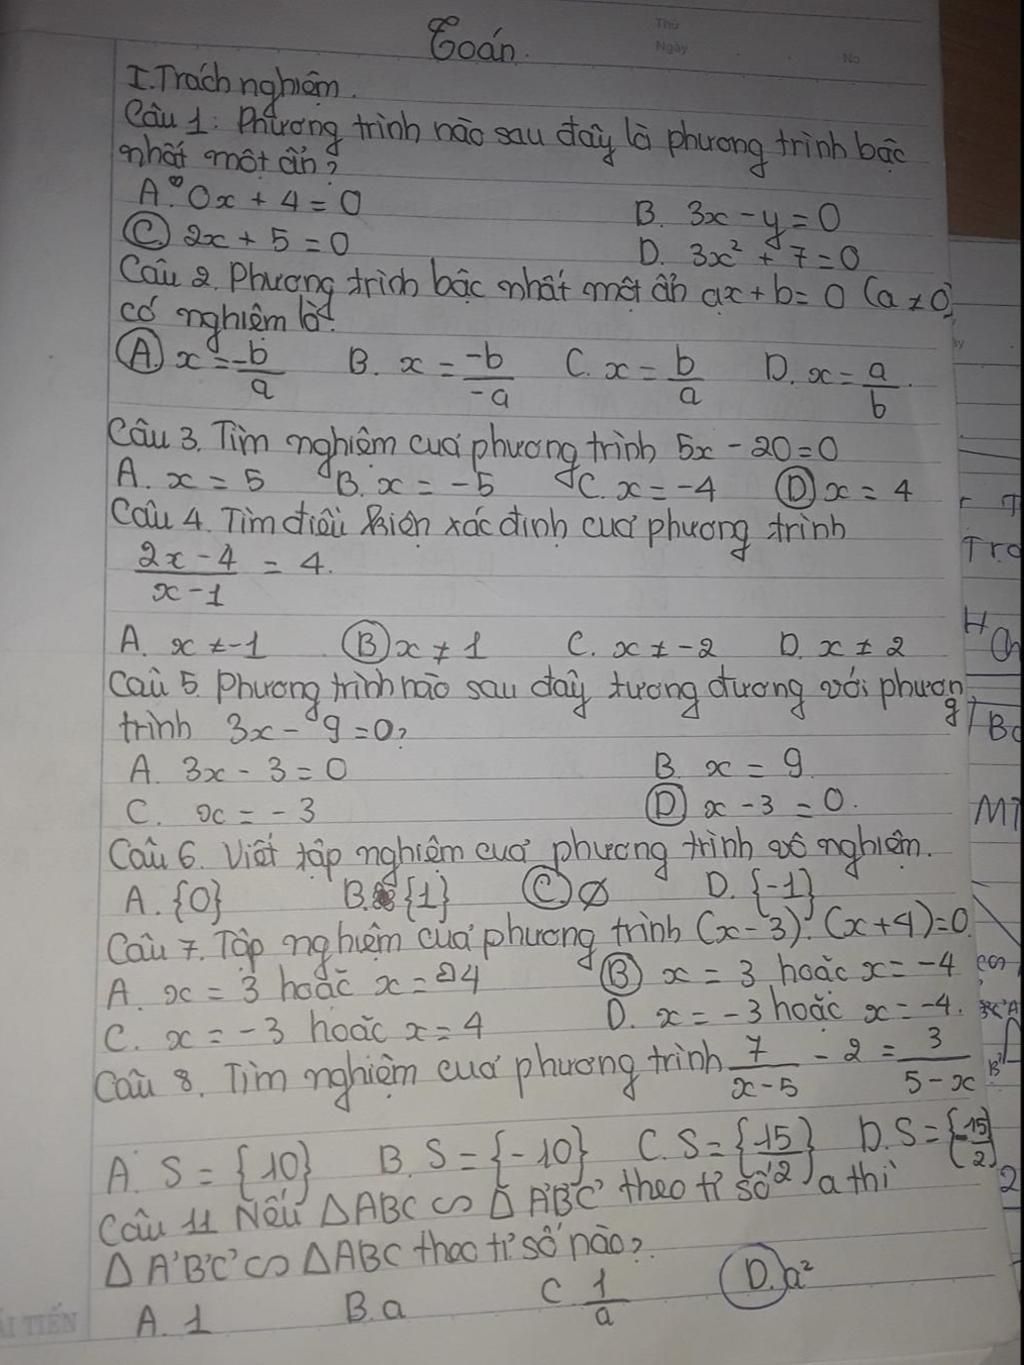 Thứ
Ngày
No
Toán.
I. Trách nghiệm.
Câu 1: Phương trình nào sau đây là phương trình bậc
nhất một ẩn?
A. 0x + 4 = 0 B. 3x - y = 0
C. 2x + 5 = 0 D. 3x² + 7 = 0
Câu 2. Phương trình bậc nhất một ẩn ax + b = 0 (a ≠ 0)
có nghiệm là?
A. x = -b/a B. x = -b/-a C. x = b/a D. x = a/b.
Câu 3. Tìm nghiệm của phương trình 5x - 20 = 0
A. x = 5 B. x = -5 C. x = -4 D. x = 4
Câu 4. Tìm điều kiện xác định của phương trình
2x - 4/x - 1 = 4.
A. x ≠ -1 B. x ≠ 1 C. x ≠ -2 D. x ≠ 2
Câu 5. Phương trình nào sau đây tương đương với phương
trình 3x - 9 = 0?
A. 3x - 3 = 0 B. x = 9
C. x = -3 D. x - 3 = 0.
Câu 6. Viết tập nghiệm của phương trình vô nghiệm.
A. {0} B. {1} C. ∅ D. {-1}
Câu 7. Tập nghiệm của phương trình (x - 3).(x + 4) = 0
A. x = 3 hoặc x = 4 B. x = 3 hoặc x = -4
C. x = -3 hoặc x = 4 D. x = -3 hoặc x = -4.
Câu 8. Tìm nghiệm của phương trình 7/x - 5 - 2 = 3/5 - x
A. S = {10} B. S = {-10} C. S = {15/2} D. S = {-15/2}
Câu 11 Nếu ΔABC ∽ ΔA'B'C' theo tỉ số a thì
ΔA'B'C' ∽ ΔABC theo tỉ số nào?
A. 1 B. a C. 1/a D. a²
TIẾN